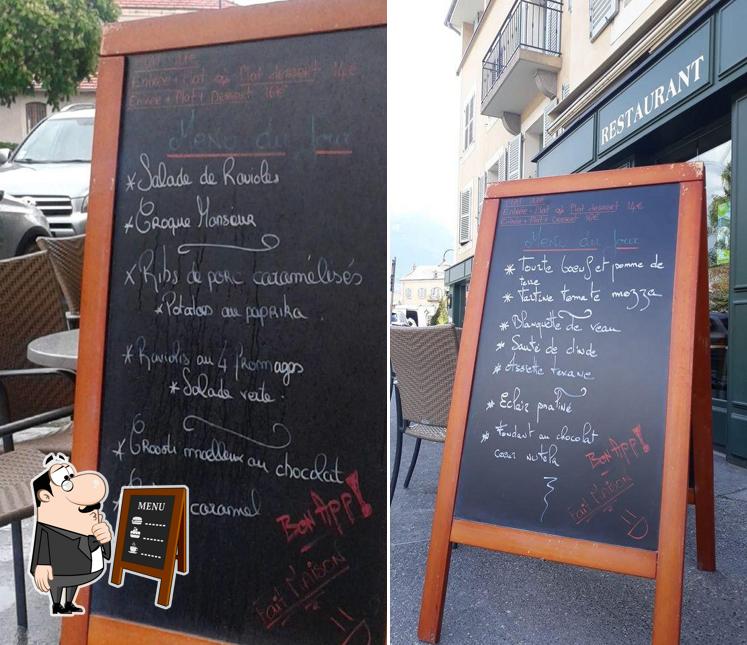 Entrée + Plat ou Plat dessert 14€
Entrée + Plat + Dessert 16€
Menu du Jour
* Salade de Ravioles
* Croque Monsieur
* Ribs de porc caramélisés
* Potatoes au paprika
* Raviolis au 4 fromages
* Salade verte.
* moelleux au chocolat
caramel
BON APP!
Fait MAISON
MENU
RESTAURANT
Entrée + Plat ou Plat dessert 14€
Entrée + Plat + Dessert 16€
Menu du Jour
* Tourte boeuf et pomme de
terre
* Tartine tomate mozza
* Blanquette de veau
* Sauté de dinde
* Assiette texane
* Eclair praliné
* Fondant au chocolat
coeur nutella
BON APP!
Fait MAISON